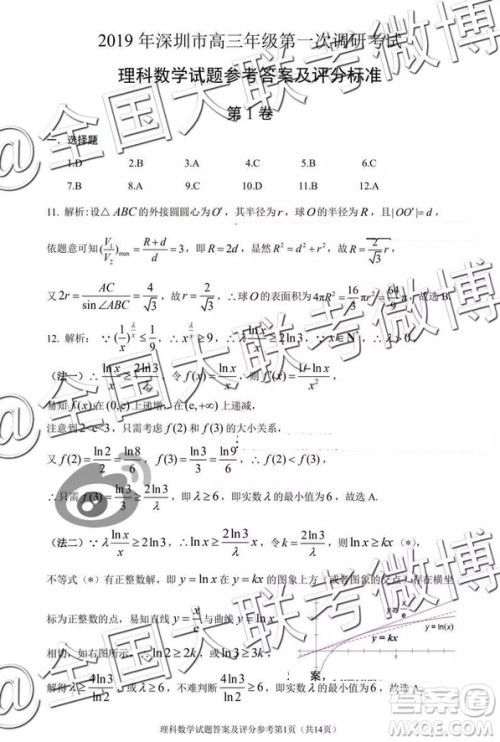 2019 年深圳市高三年级第一次调研考试
理科数学试题参考答案及评分标准
第 1 卷
一. 选择题
1.D 2.B 3.A 4.B 5.B 6.C
7.B 8.A 9.C 10.D 11.B 12.A
11. 解析:设△ABC 的外接圆圆心为 O′，其半径为 r，球 O 的半径为 R，且|OO′|= d，
依题意可知(V₁/V₂)max = (R+d)/d = 3，即 R = 2d，显然 R² = d² + r²，故 R = 2/√3 r，
又 2r = AC/sin∠ABC = 4/√3，故 r = 2/√3，∴球 O 的表面积为 4πR² = 16/3 πr² = 64/9 π，故选 B.
12. 解析：∵(1/x)^(λ/x) ≤ 1/9，∴x^(λ/x) ≥ 9，∴ λ lnx/x ≥ 2ln3，
（法一）∴ lnx/x ≥ 2ln3/λ，令 f(x) = lnx/x，则 f′(x) = (1−lnx)/x²，
易知 f(x) 在 (0,e) 上递增，在 (e,+∞) 上递减，
注意到 2<e<3，只需考虑 f(2) 和 f(3) 的大小关系，
又 f(2) = ln2/2 = ln8/6，f(3) = ln3/3 = ln9/6，∴ f(2) < f(3)，
∴只需 f(3) = ln3/3 ≥ 2ln3/λ，即 λ ≥ 6，即实数 λ 的最小值为 6，故选 A.
（法二）∵ λ lnx/x ≥ 2ln3，∴ lnx ≥ 2ln3/λ x，令 k = 2ln3/λ，则 lnx ≥ kx（*），
不等式（*）有正整数解，即 y = lnx 在 y = kx 的图象上方（或者图象的交点）存在横坐
标为正整数的点，易知直线 y = x/e 与曲线
相切，如右图所示，
y = x/e
y = ln(x)
y = kx
解得 λ ≥ 4ln3/ln2 或 λ ≥ 6，不难判断 4ln3/ln2 ≥ 6，即实数 λ 的最小值为 6，故选 A.
理科数学试题答案及评分参考第1页（共14页）
@全国大联考微博
@全国大联考微博
@全国大联考微博